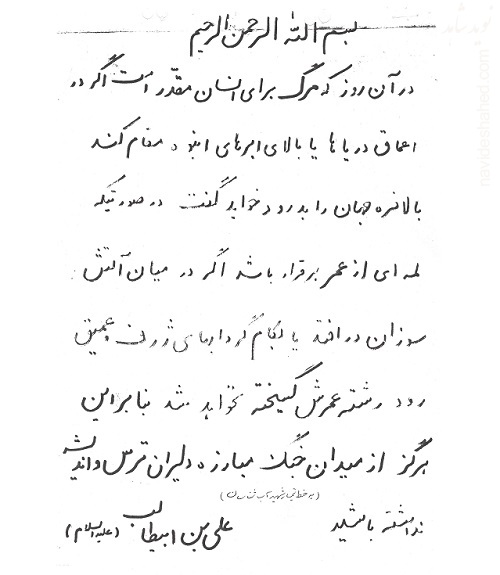 بسم الله الرحمن الرحیم
در آن روز که مرگ برای انسان مقدّر است اگر در
اعماق دریاها یا بالای ابرهای انبوه مقام کند
بالاخره جهان را بدرود خواهد گفت در صورتیکه
لمه ای از عمر برقرار باشد اگر در میان آتش
سوزان در افتد یا بکام گردابهای ژرف و عمیق
رود رشته عمرش گسیخته نخواهد شد بنابراین
هرگز از میدان جنگ مبارزه دلیران ترس و اندیشه
نداشته باشید
علی بن ابیطالب (علیه السلام)
navideshahed.com